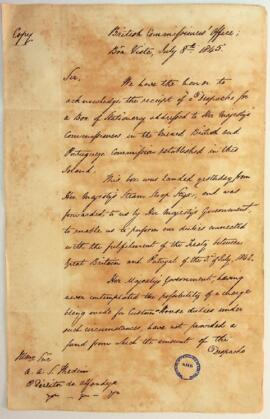 Copy
British Commissioners' Office;
Bôa Vista, July 8th 1845
Sir,
We have the honor to
acknowledge the receipt of a Despacho
for a Box of Stationary addressed to Her Majesty's
Commissioners in the Mixed British and
Portuguese Commission established in this
Island.
This box was landed yesterday from
Her Majesty's Steam Sloop and was
forwarded to us by Her Majesty's Government,
to enable us to perform our duties connected
with the fulfilment of the Treaty between
Great Britain and Portugal of the 3d July, 1842.
Her Majesty's Government, having
never contemplated the possibility of a charge
being made for Custom House duties under
such circumstances, have not provided a
fund from which the amount of the
Despacho
Illmo Snr
Director da Alfandega
AHU